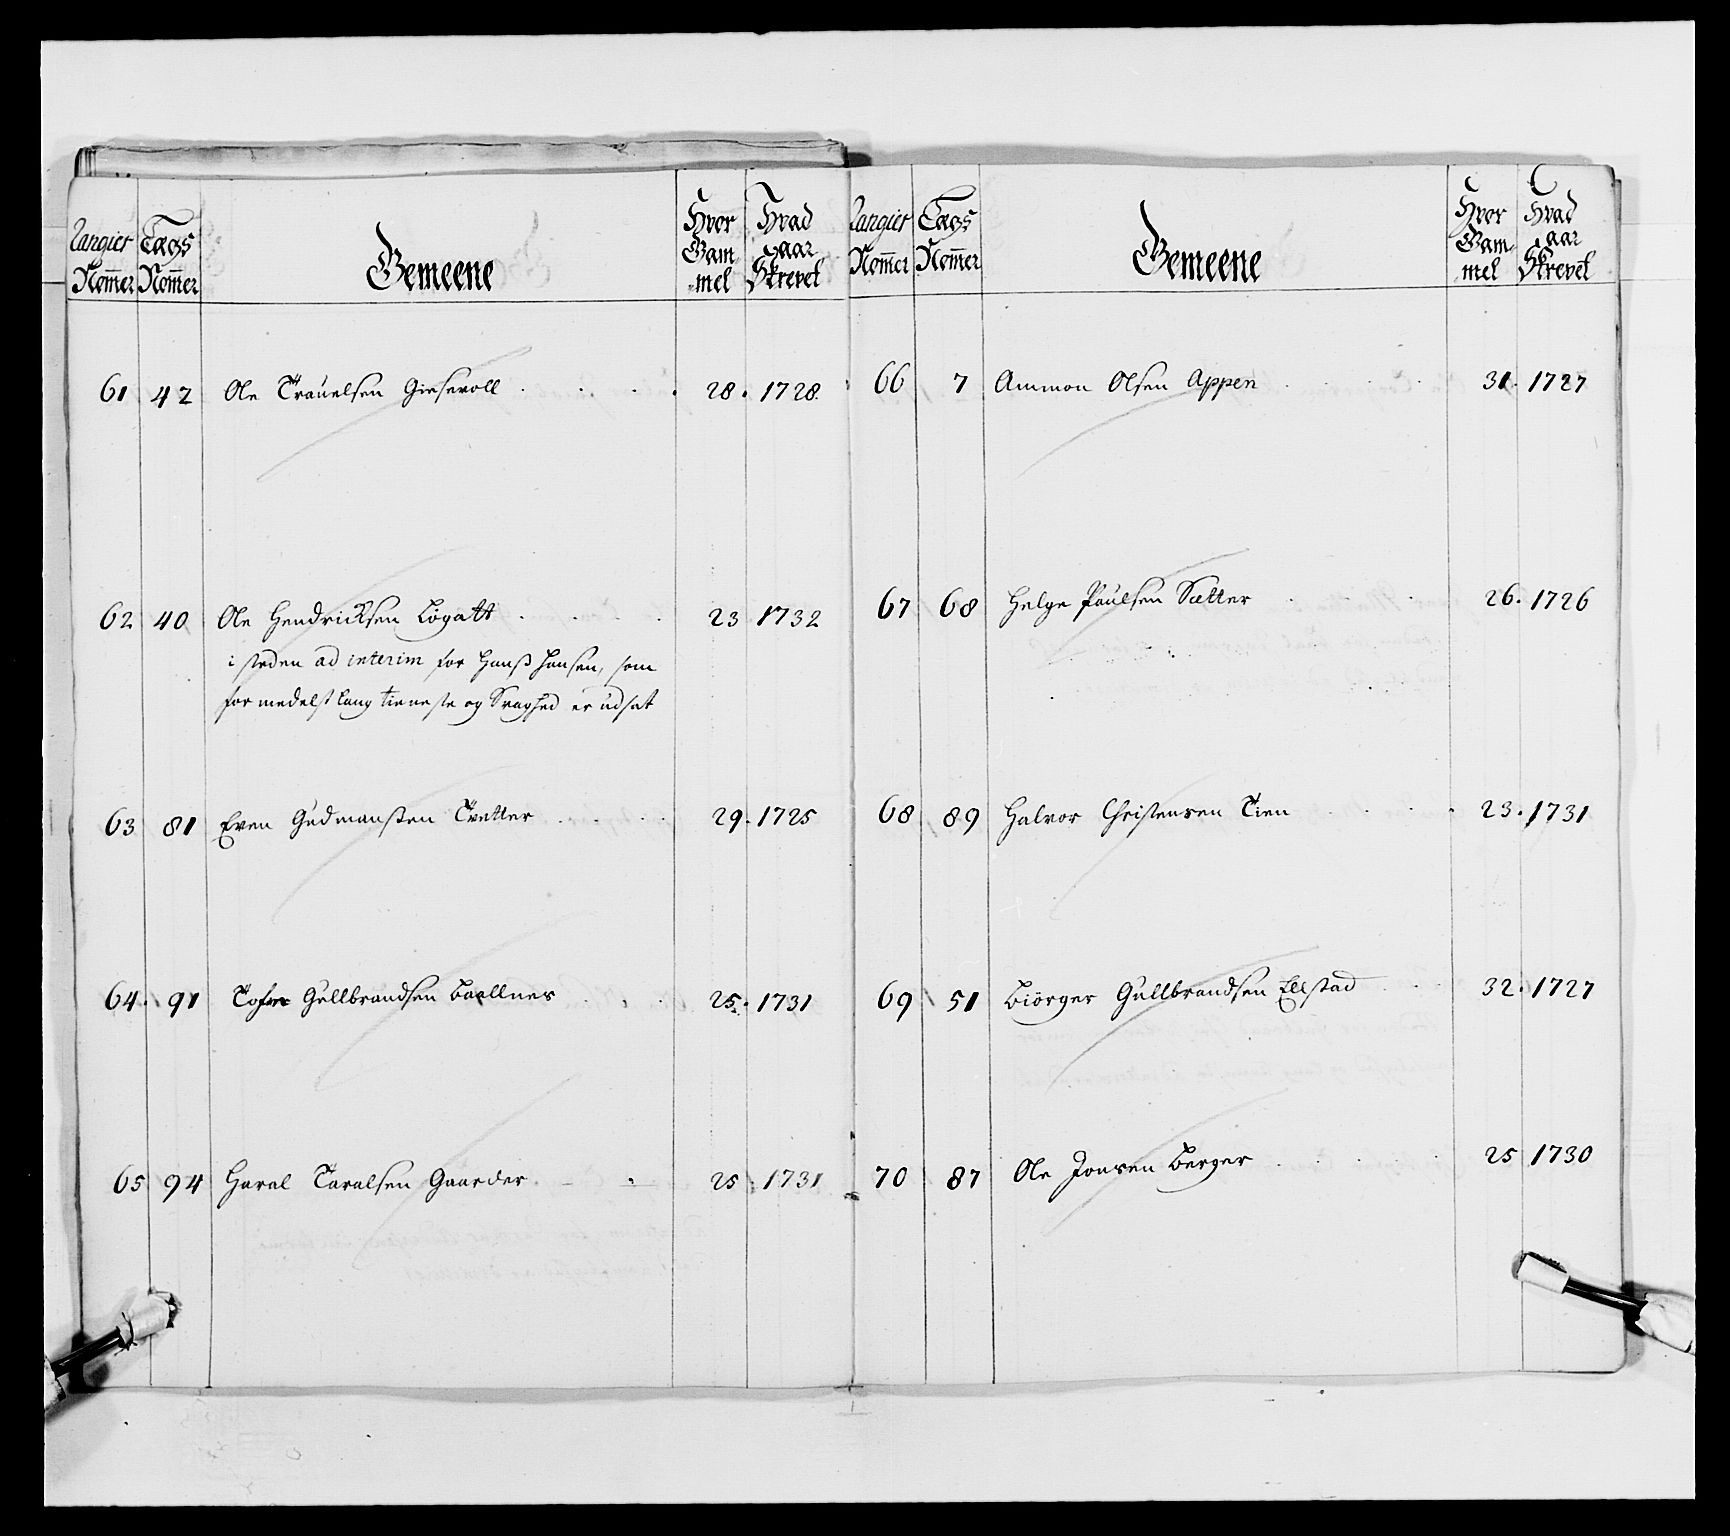 Rangier Nom̄er | Lægs Nom̄er | Gemeene | Hvor Gammel | Hvad aar Skrevet
61 | 42 | Ole Trauelsen Giefevoll | 28. | 1728.
62 | 40 | Ole Hendricksen Løgatt | 23 | 1732
i steden ad interim for Hanß Hansen, som
formedelst lang tieneste og Svaghed er udsat
63 | 81 | Even Gudmanßen Tretter | 29. | 1725
64. | 91 | Gullbrandsen Baellnes | 25. | 1731
65 | 94 | Haral Taralsen Gaarder | 25 | 1731
Rangier Nom̄er | Lægs Nom̄er | Gemeene | Hvor Gammel | Hvad aar Skrevet
66 | 7 | Ammon Olsen Appen | 31. | 1727
67 | 68 | Helge Paulsen Sætter | 26. | 1726
68 | 89 | Halvor Christensen Tien | 23. | 1731
69 | 51 | Biörger Gullbrandsen Ellstad | 32. | 1727
70 | 87 | Ole Jonsen Berger | 25 | 1730